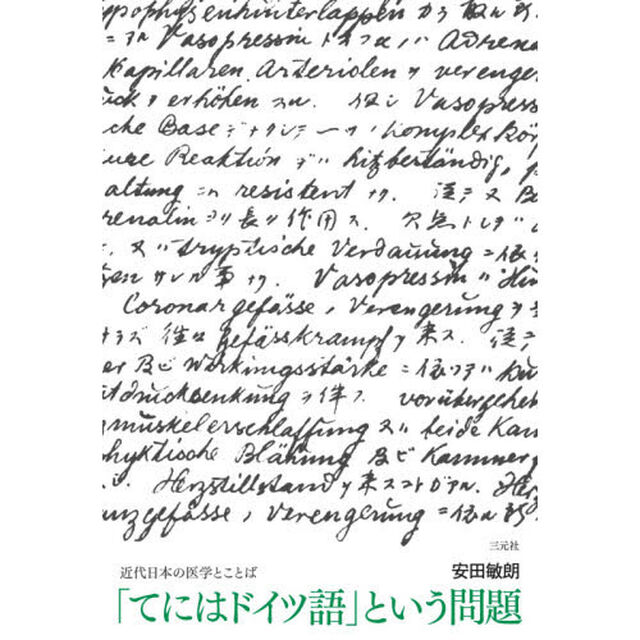 ypophysenhinterlappen から取
Vasopressin トスフ Adrena
Kapillaren, Arteriolen ヲ verenger
ück ヲ erhöhen スル. 但シ Vasopress
che Base デナクシテ一ツノ Komplex Kör
ure Reaktion デハ hitzbeständig,
altung ニハ resistent ナリ. 注ラヌ
renalin ヨリ長ク作用ス. 欠点トシテハ
tryptische Verdauung ニ依
事ナリ. Vasopressin ハ
Coronargefässe ノ Verengerung ヲ
ナラズ 往々 Gefässkrampf ヲ来ス.
er 及ビ Wirkungsstärke ニ依
tdrucksenkung ヲ伴フ. vorübergehen
muskelerschlaffung beide Kam
phyktische Blähung 及ビ Kammer
Herzstillstand ヲ来スコトガアル. Her
nzgefässe ノ Verengerung ニ依
三元社
近代日本の医学とことば
安田敏朗
「てにはドイツ語」という問題